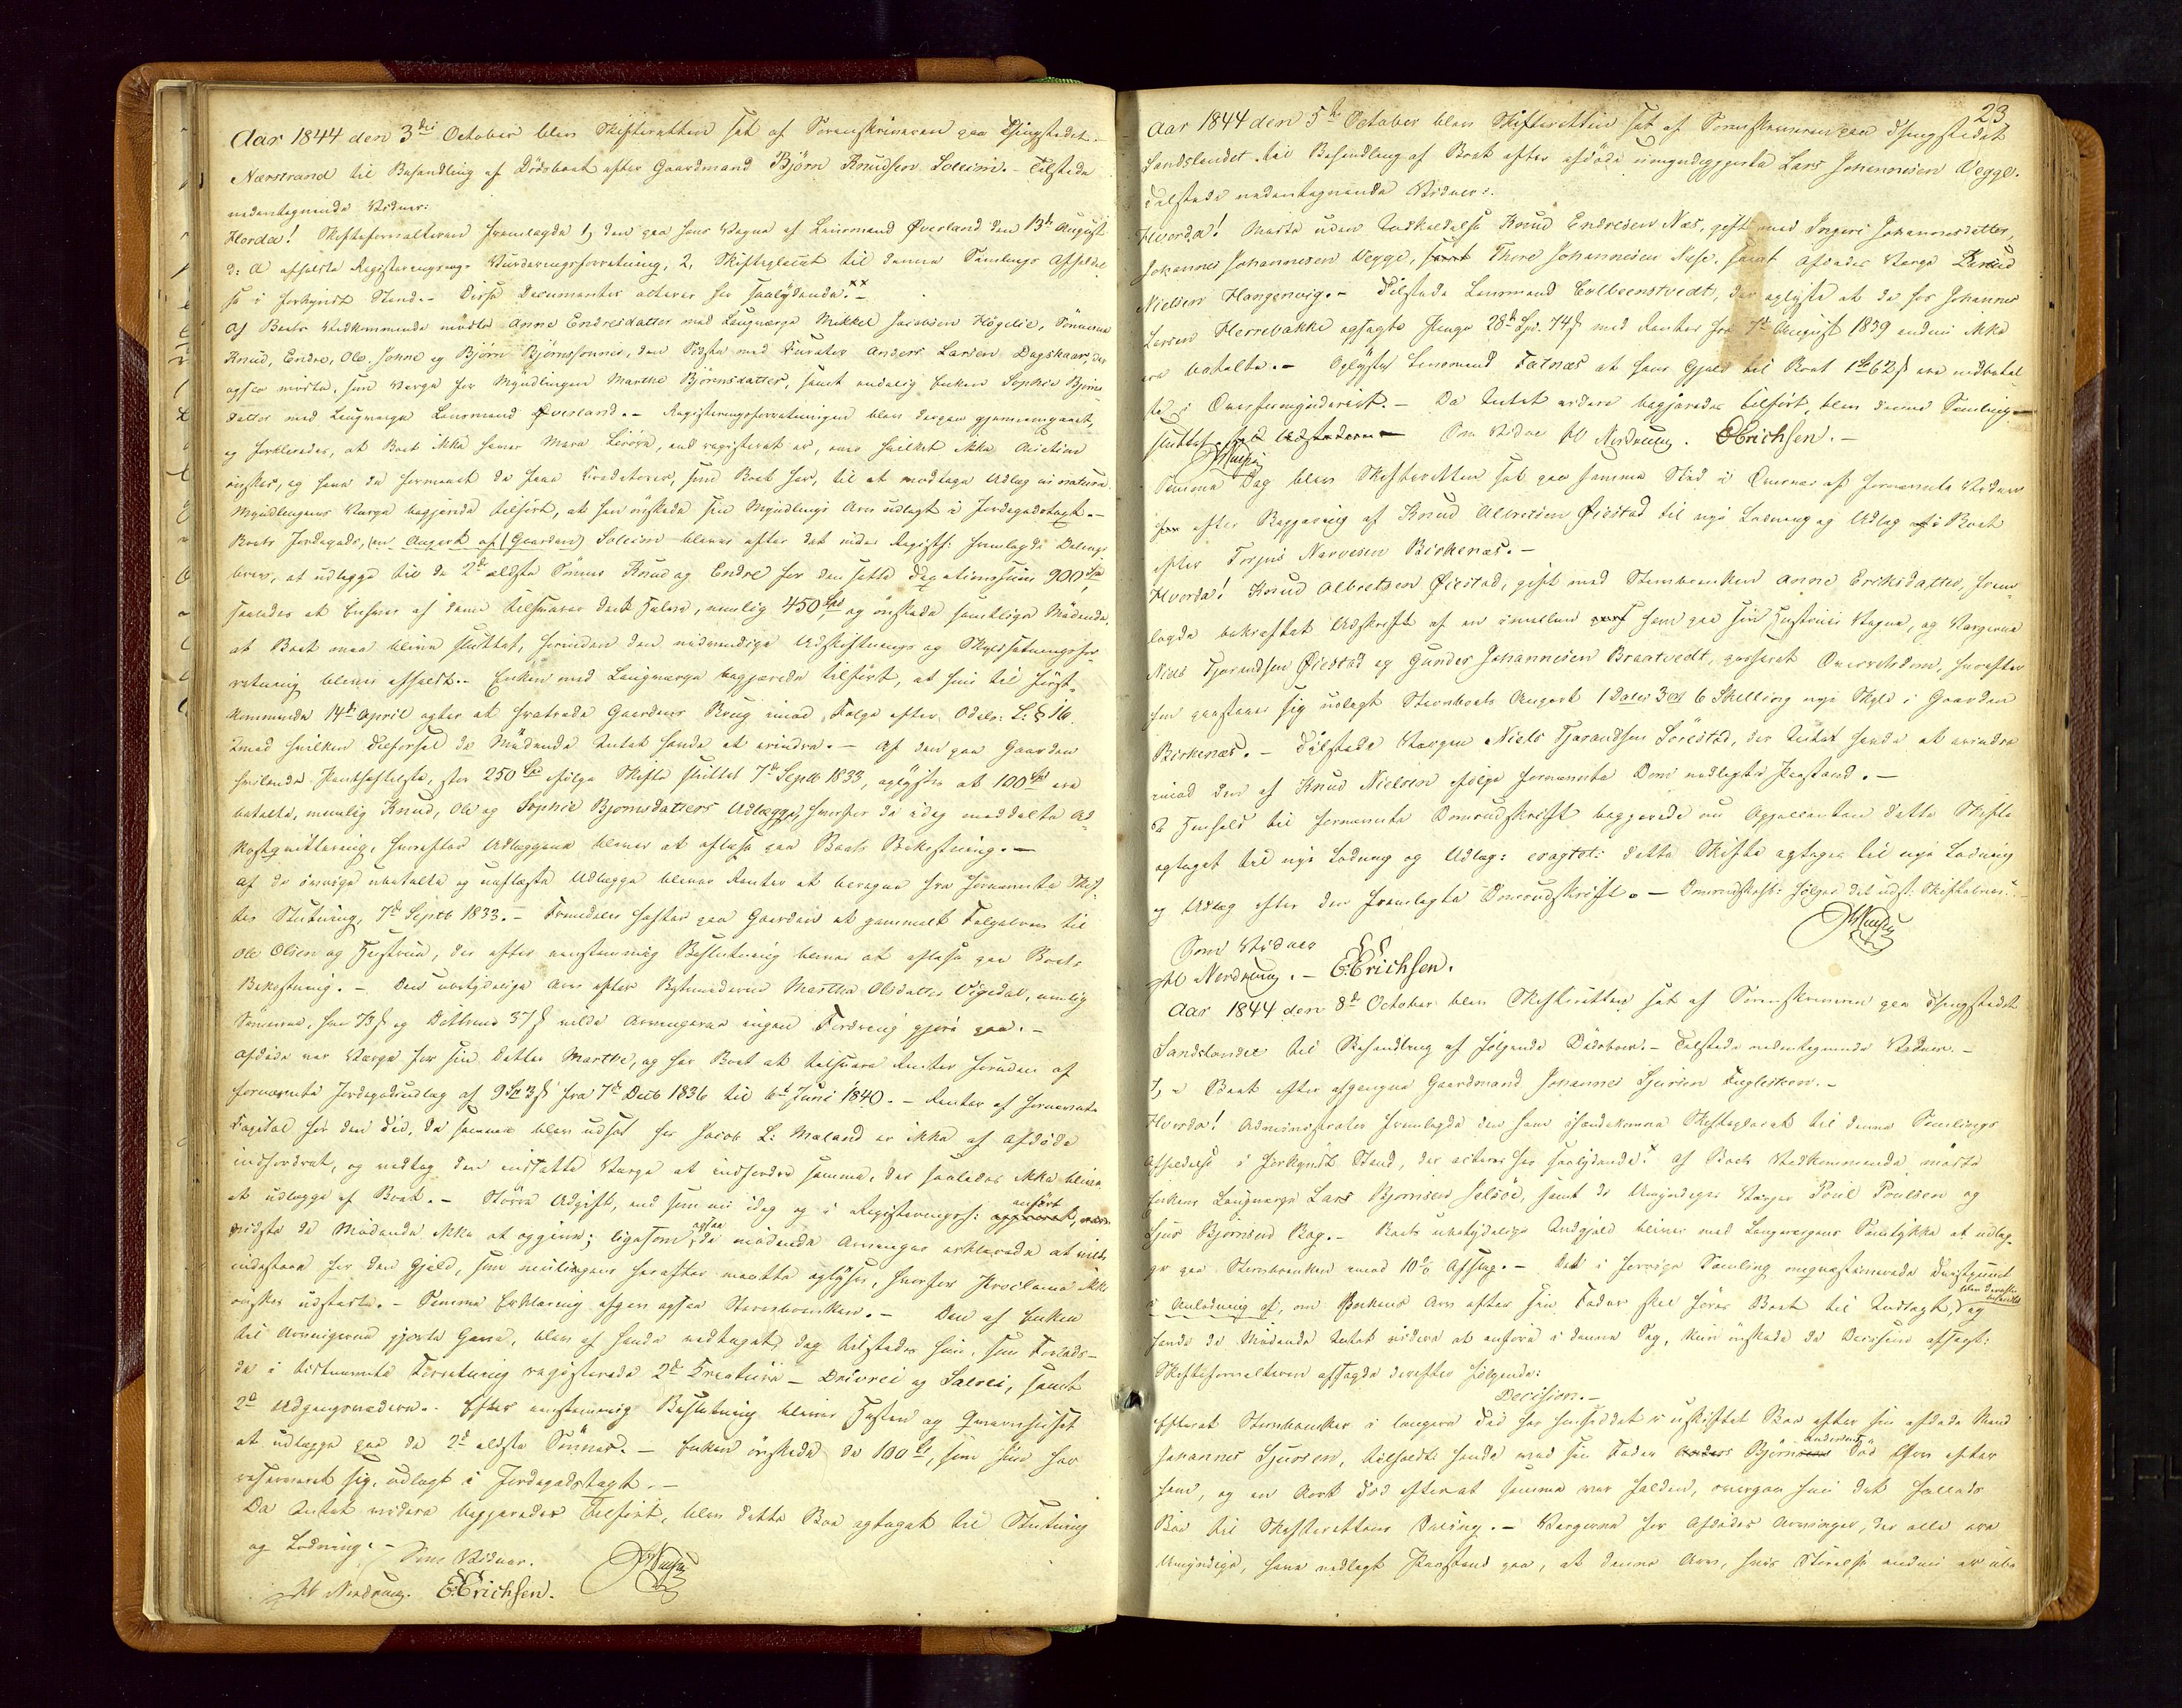 Aar 1844 den 3die October blev Skifteretten sat af Sorenskriveren paa Thingstedet
Nærstrand til Behandling af Dødsboet efter Gaardmand Björn Knudsen Soleim. - Tilstede
undertegnende Vidner:
Hvorda! Skifteforvalteren fremlagde 1, den paa hans Vegne af Lensmand Øverland den 13de August
d: A afholdte Registrerings og Vurderingsforretning, 2, Skifteplacat til denne Samlings Afholdel-
se i forkyndt Stand. - Disse Documenter acteres her saalydende: xx
Af Boets Vedkommende mødte Anne Endresdatter med Laugværge Mikkel Jacobsen Högelie, Sönnerne
Knud, Endre, Ole, Johne og Björn Björnssönner, den Sidste med Curator Anders Larsen Dagskaar, der
ogsaa mødte, som Værge for Myndlingen Marthe Björnsdatter, samt endelig Enken Sophie Björns-
datter med Laugværge Lensmand Øverland. - Registreringsforretningen blev dergaa gjennemgaaet,
og forklaredes, at Boet ikke havde mere Løsøre, end registreret er, over hvilket ikke Auction
ønskes, og have de formaaet de faae Creditorer, som Boet har, til at modtage Udlag in natura.
Myndlingens Værge begjerede tilført, at han ønskede sin Myndlings Arv udlagt i Jordegodstaxt. -
Boets Jordegods, (en Anpart af) Gaarden Soleim bliver efter det under Registf: fremlagde Delings
brev, at udlægge til de 2de ældste Sönner Knud og Endre for den satte Taxationssum 900 Spd
saaledes at Enhver af dem tilsvarer det Halve, nemlig 450 Spd og ønskede samtlige Mødende,
at Boet maa blive sluttet, forinden den nødvendige Udskiftnings og Skyldsætningsfor-
retning bliver afholdt. - Enken med Laugværge begjærede tilført, at hun til Först-
kommende 14de April agter at fratræde Gaardens Brug imod Folge efter Odels: L: § 16.
Imod hvilken Tilførsel de Mødende Intet havde at erindre. - Af den paa Gaarden
hvilende Pantehæftelse, stor 250 Spd ifølge Skifte sluttet 7de Septb 1833, oplystes at 100 Spd ere
betalte, nemlig Knud, Ole og Sophie Bjornsdatters Udlægge, hvorfor de idag meddelte Ad-
kostqvittering, hvorefter Udlæggene bliver at aflæse paa Boets Bekostning. -
Af de øvrige ubetalte og uaflæste Udlægge bliver Renter at beregne fra fornævnte Skif-
tes Slutning, 7de Septb 1833. - Fremdeles hæfter paa Gaarden et gammelt Folgebrev til
Ole Olsen og Hustrue, der efter eenstemmig Beslutning bliver at aflyse paa Boets
Bekostning. - Den ubetydelige Arv efter Bestemoderen Martha Olsdatter Vigedal, nemlig
Sönnerne, hver 73 ß og Döttrene 37 ß vilde Arvingerne ingen Fordring gjöre paa. -
Afdøde var Værge for sin Datter Marthe, og har Boet at tilsvare Renter foruden af
fornævnte Jordegodsudlæg af 9 Spd 3 ß fra 7de Decb 1836 til 6te Juni 1840. - Renter af fornævnte
Capital for den Tid, da samme blev udsat hos Jacob L: Mæland er ikke af Afdøde
indfordret, og vedtog den indsatte Værge at indfordre samme, der saaledes ikke bliver
at udlægge af Boet. - Større Udgift, end som nu idag og i Registreringsf: anført,
vidste de Mødende ikke at opgive; ligesom ogsaa de mødende Arvinger erklærede at ville
indestaae for den Gjeld, som muligens herefter maatte oplyses, hvorfor Proclama ikke
ønskes udstedt. - Samme Erklæring afgav ogsaa Stervboenken. - Den af Enken
til Arvingerne gjorte Gave, blev af hende vedtaget, dog tilstodes hun, som Forlods-
de i bestemmte Forretning registrerede 2de Creaturer - Drivrei og Salrei, samt
2de Udgangsmedere. Efter eenstemmig Beslutning bliver Husene og Qværnhuset
at udlægge paa de 2de ældste Sönner. - Enken ønskede de 100 Spd, som hun har
reserveret sig, udlagt i Jordegodstaxt. -
Da Intet videre begjæredes tilført, blev dette Boe optaget til Slutning
og Lodning. -
Som Vidner.
M Nordtung. E. Erichsen.
23
Aar 1844 den 5te October blev Skifteretten sat af Sorenskriveren paa Thingstedet
Sandslandet til Behandling af Boet efter afdøde uimyndiggjorte Lars Johannesen Vegge.
Tilstede undertegnende Vidner:
Hvorda! Mødte uden Indkaldelse Knud Endresen Næs, gift med Ingeri Johannesdatter,
Johannes Johannesen Vegge, samt Thore Johannesen Næse, samt Afdødes Værge Knud
Nielsen Hangenvig. - Tilstede Lensmand Colbeenstvedt, der oplyste at de hos Johannes
Larsen Herrebakke opsagte Penge 28 Spd. 74 ß med Renter fra 7de August 1839 endnu ikke
ere betalte. - Oplyste Lensmand Fatnæs at hans Gjeld til Boet 1 Spd 62 ß ere indbetal-
te i Overformynderiet. - Da Intet videre begjæredes tilført, blev denne Samling
sluttet. Som Vidner M Nordtung. E Erichsen. -
Samme Dag blev Skifteretten sat paa samme Sted i Overvær af fornævnte Vidner
efter Begjæring af Knud Albretsen Øiestad til nye Lodning og Udlæg i Boet
efter Torjus Narvesen Birkenæs. -
Hvorda! Knud Albretsen Øiestad, gift med Stervboenken Anne Eriksdatter, frem-
lagde bekræftet Udskrift af en imellem ham paa sin Hustrues Vegne, og Værgerne
Niels Tjerandsen Øiestad og Gunder Johannesen Braatvedt, passeret Overretsdom, hvorefter
han paastaaer sig udlagt Stervboets Anpart 1 Daler 3 ort 6 Skilling nye Skyld i Gaarden
Birkenæs. - Tilstede Værgen Niels Tjerandsen Sörestad, der Intet havde at erindre
imod den af Knud Nielsen ifølge fornævnte Dom nedlagte Paastand. -
I Henhold til fornævnte Domsudskrift begjærede nu Appellanten dette Skifte
optaget til nye Lodning og Udlæg: eragtet: dette Skifte optages til nye Lodning
og Udlæg efter den fremlagte Domsudskrift. - Domsudskrift: følger det udst: Skiftebrev. -
Som Vidner
M Nordtung. - E. Erichsen.
Aar 1844 den 8de October blev Skifteretten sat af Sorenskriveren paa Thingstedet
Sandslandet til Behandling af følgende Dödsboer. - Tilstede undertegnende Vidner. -
1, Boet efter afgangne Gaardmand Johannes Sjursen Fuglesteen. -
Hvorda! Administrator fremlagde den ham ihændekomne Skifteplacat til denne Samlings
Afholdelse i forkyndt Stand, der acteres her saalydende: x Af Boets Vedkommende mødte
Enkens Laugværge Lars Bjørnsen Jelsöe, samt de Umyndiges Værger Poul Poulsen og
Sjur Björnsen Bog. - Boets ubetydelige Indgjeld bliver med Laugværgens Samtykke at udlæg-
ge paa Stervboenken imod 10 % Afslag. - Det i forrige Samling omqvæstionerede Tvistpunct
i Anledning af, om Enkens Arv efter sin Fader skal høre Boet til Indtægt, blev derefter behandlet og
havde de Mødende Intet videre at anføre i denne Sag, kun ønskede de Decision afsagt:
Skifteforvalteren afsagde derefter følgende:
Decision. -
Efterat Stervboenken i længere Tid har henseddet i uskiftet Boe efter sin afdøde Mand
Johannes Sjursen, tilfaldt hende med sin Fader Björn Andersens Död Arv efter
ham, og en kort Tid efterat samme var falden, overgav hun det fælleds
Boe til Skifterettens Deling. - Værgerne for Afdødes Arvinger, der alle ere
Umyndige, have nedlagt Paastand paa, at denne Arv, hvis Størrelse endnu er ube